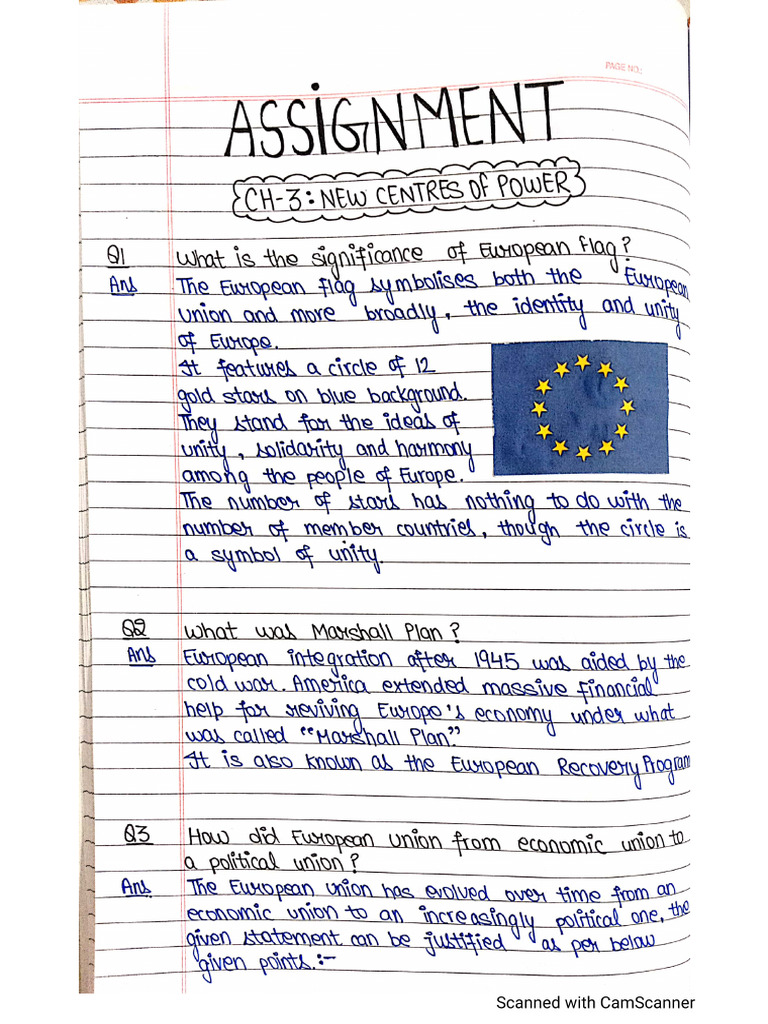 PAGE NO.:
ASSIGNMENT
CH-3: NEW CENTRES OF POWER
Q1 What is the significance of European flag?
Ans The European flag symbolises both the European
union and more broadly, the identity and unity
of Europe.
It features a circle of 12
gold stars on blue background.
They stand for the ideas of
unity, solidarity and harmony
among the people of Europe.
The number of stars has nothing to do with the
number of member countries, though the circle is
a symbol of unity.
Q2 What was Marshall Plan?
Ans European integration after 1945 was aided by the
cold war. America extended massive financial
help for reviving Europe's economy under what
was called "Marshall Plan."
It is also known as the European Recovery Program
Q3 How did European union from economic union to
a political union?
Ans The European union has evolved over time from an
economic union to an increasingly political one, the
given statement can be justified as per below
given points.:-
Scanned with CamScanner